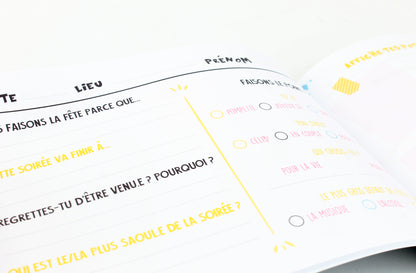 TE LIEU PRÉNOM
S FAISONS LA FÊTE PARCE QUE...
TTE SOIRÉE VA FINIR À...
REGRETTES-TU D'ÊTRE VENU.E ? POURQUOI ?
QUI EST LE/LA PLUS SAOULE DE LA SOIRÉE ?
FAISONS LE
POMPETTE
CÉLIB' EN COUPLE
POUR LA VIE
LE PLUS GROS
LA MUSIQUE L'ALCOOL
AFFICHE TES